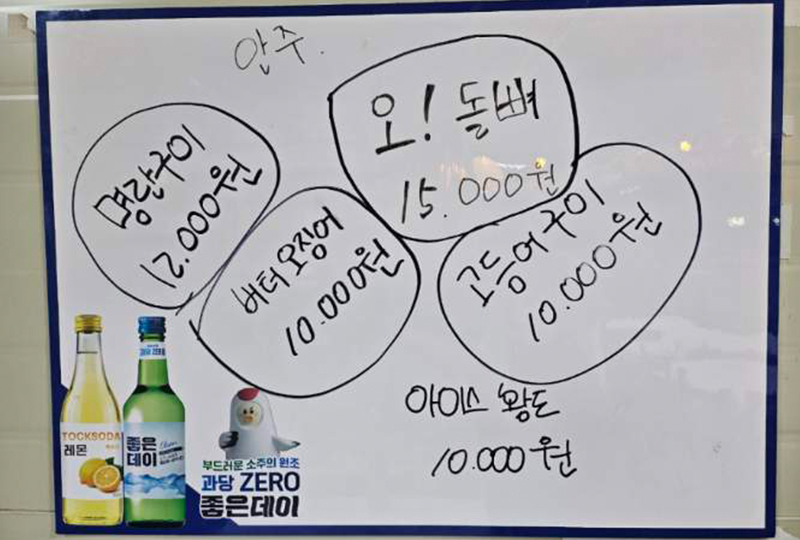 안주.
오! 돌뼈
15.000원
명란구이
12.000원
버터오징어
10.000원
고등어구이
10.000원
아이스 황도
10.000원
TOCKSODA
레몬
좋은
데이
부드러운 소주의 원조
과당 ZERO
좋은데이